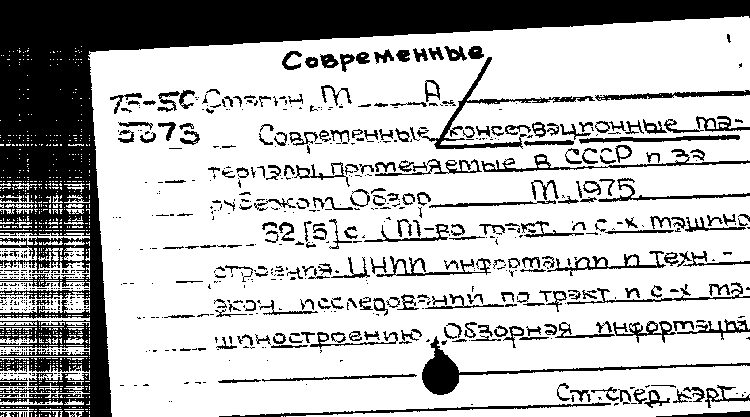 Современные
75-50 Стягин, М А
5373 Современные консервационные ма-
териалы, применяемые в СССР и за
рубежом. Обзор М., 1975.
32 [3] с. (М-во тракт. и с.-х. машино
строения. ЦНИИ информации и техн.-
экон. исследований по тракт. и с.-х. ма-
шиностроению. Обзорная информация
См. след. карт.